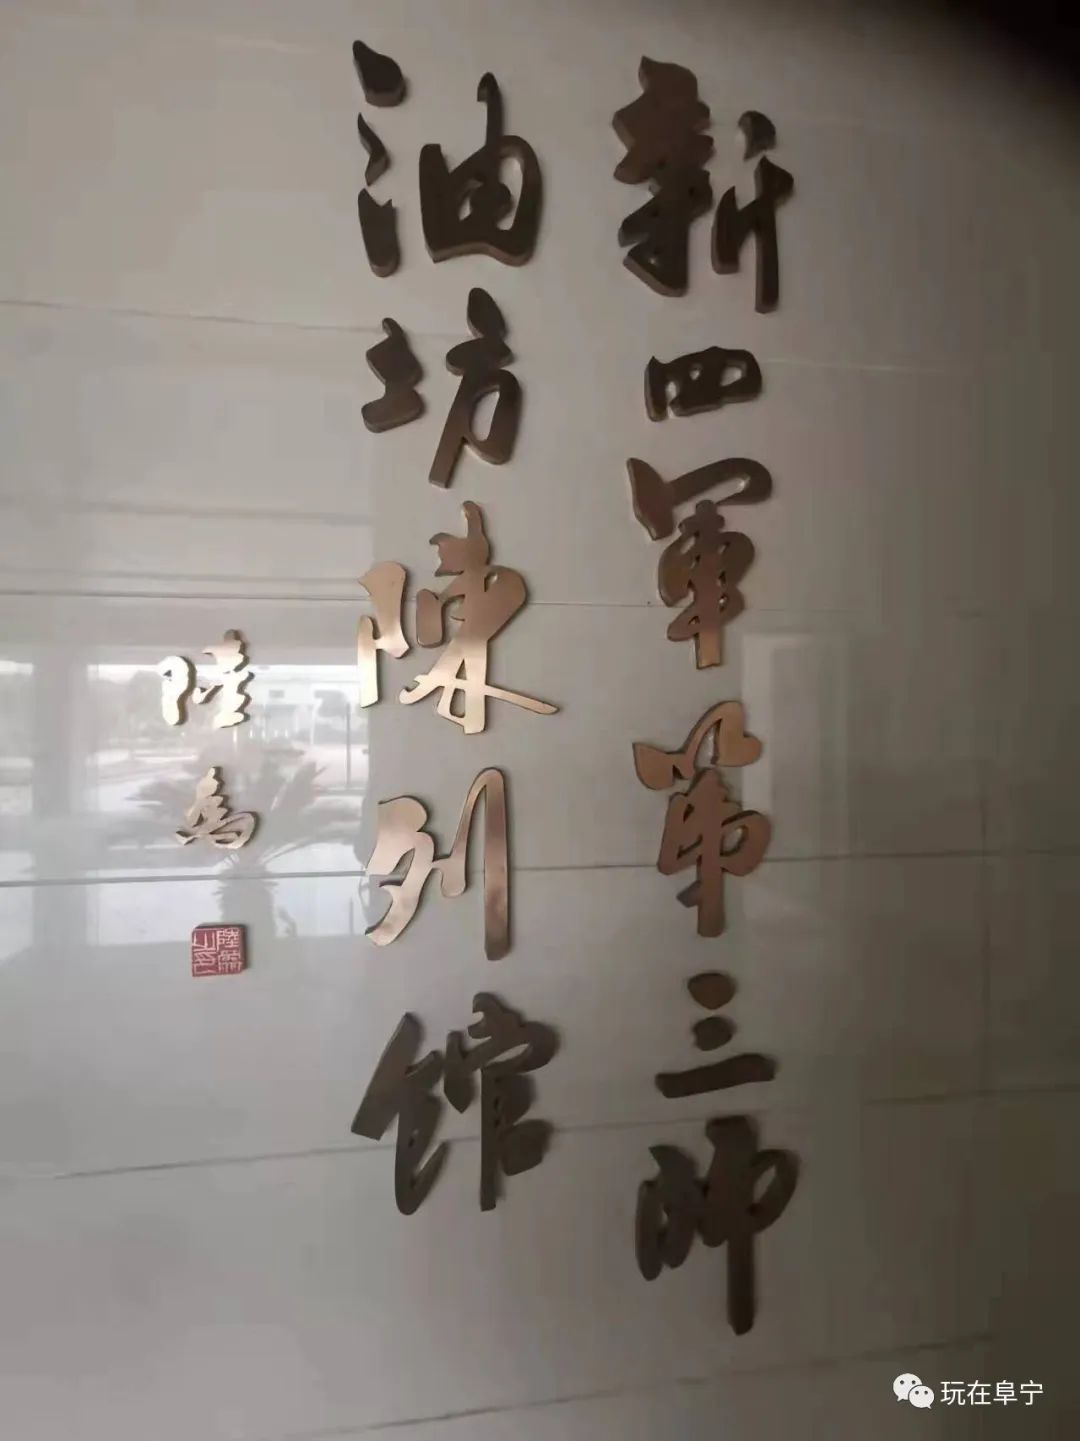 新四軍第三師
油坊陳列館
陸為
玩在阜宁